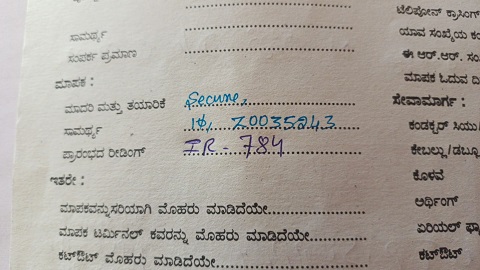 ಸಾಮರ್ಥ್ಯ
ಸಂಪರ್ಕ ಪ್ರಮಾಣ
ಮಾಪಕ :
ಮಾದರಿ ಮತ್ತು ತಯಾರಿಕೆ Secure,
ಸಾಮರ್ಥ್ಯ 1Φ, Z0035243
ಪ್ರಾರಂಭದ ರೀಡಿಂಗ್ IR - 784
ಇತರೇ :
ಮಾಪಕವನ್ನು ಸರಿಯಾಗಿ ಮೊಹರು ಮಾಡಿದೆಯೇ
ಮಾಪಕ ಟರ್ಮಿನಲ್ ಕವರನ್ನು ಮೊಹರು ಮಾಡಿದೆಯೇ
ಕಟ್‌ಔಟ್ ಮೊಹರು ಮಾಡಿದೆಯೇ
ಟೆಲಿಫೋನ್ ಕ್ರಾಸಿಂಗ್
ಯಾವ ಸಂಖ್ಯೆಯ
ಈ ಆರ್.ಆರ್.
ಮಾಪಕ ಓದುವ
ಸೇವಾಮಾರ್ಗ :
ಕಂಡಕ್ಟರ್
ಕೇಬಲ್ಲು/ಡಬ್ಲೂ
ಕೊಳವೆ
ಅರ್ಥಿಂಗ್
ಏರಿಯಲ್
ಕಟ್‌ಔಟ್